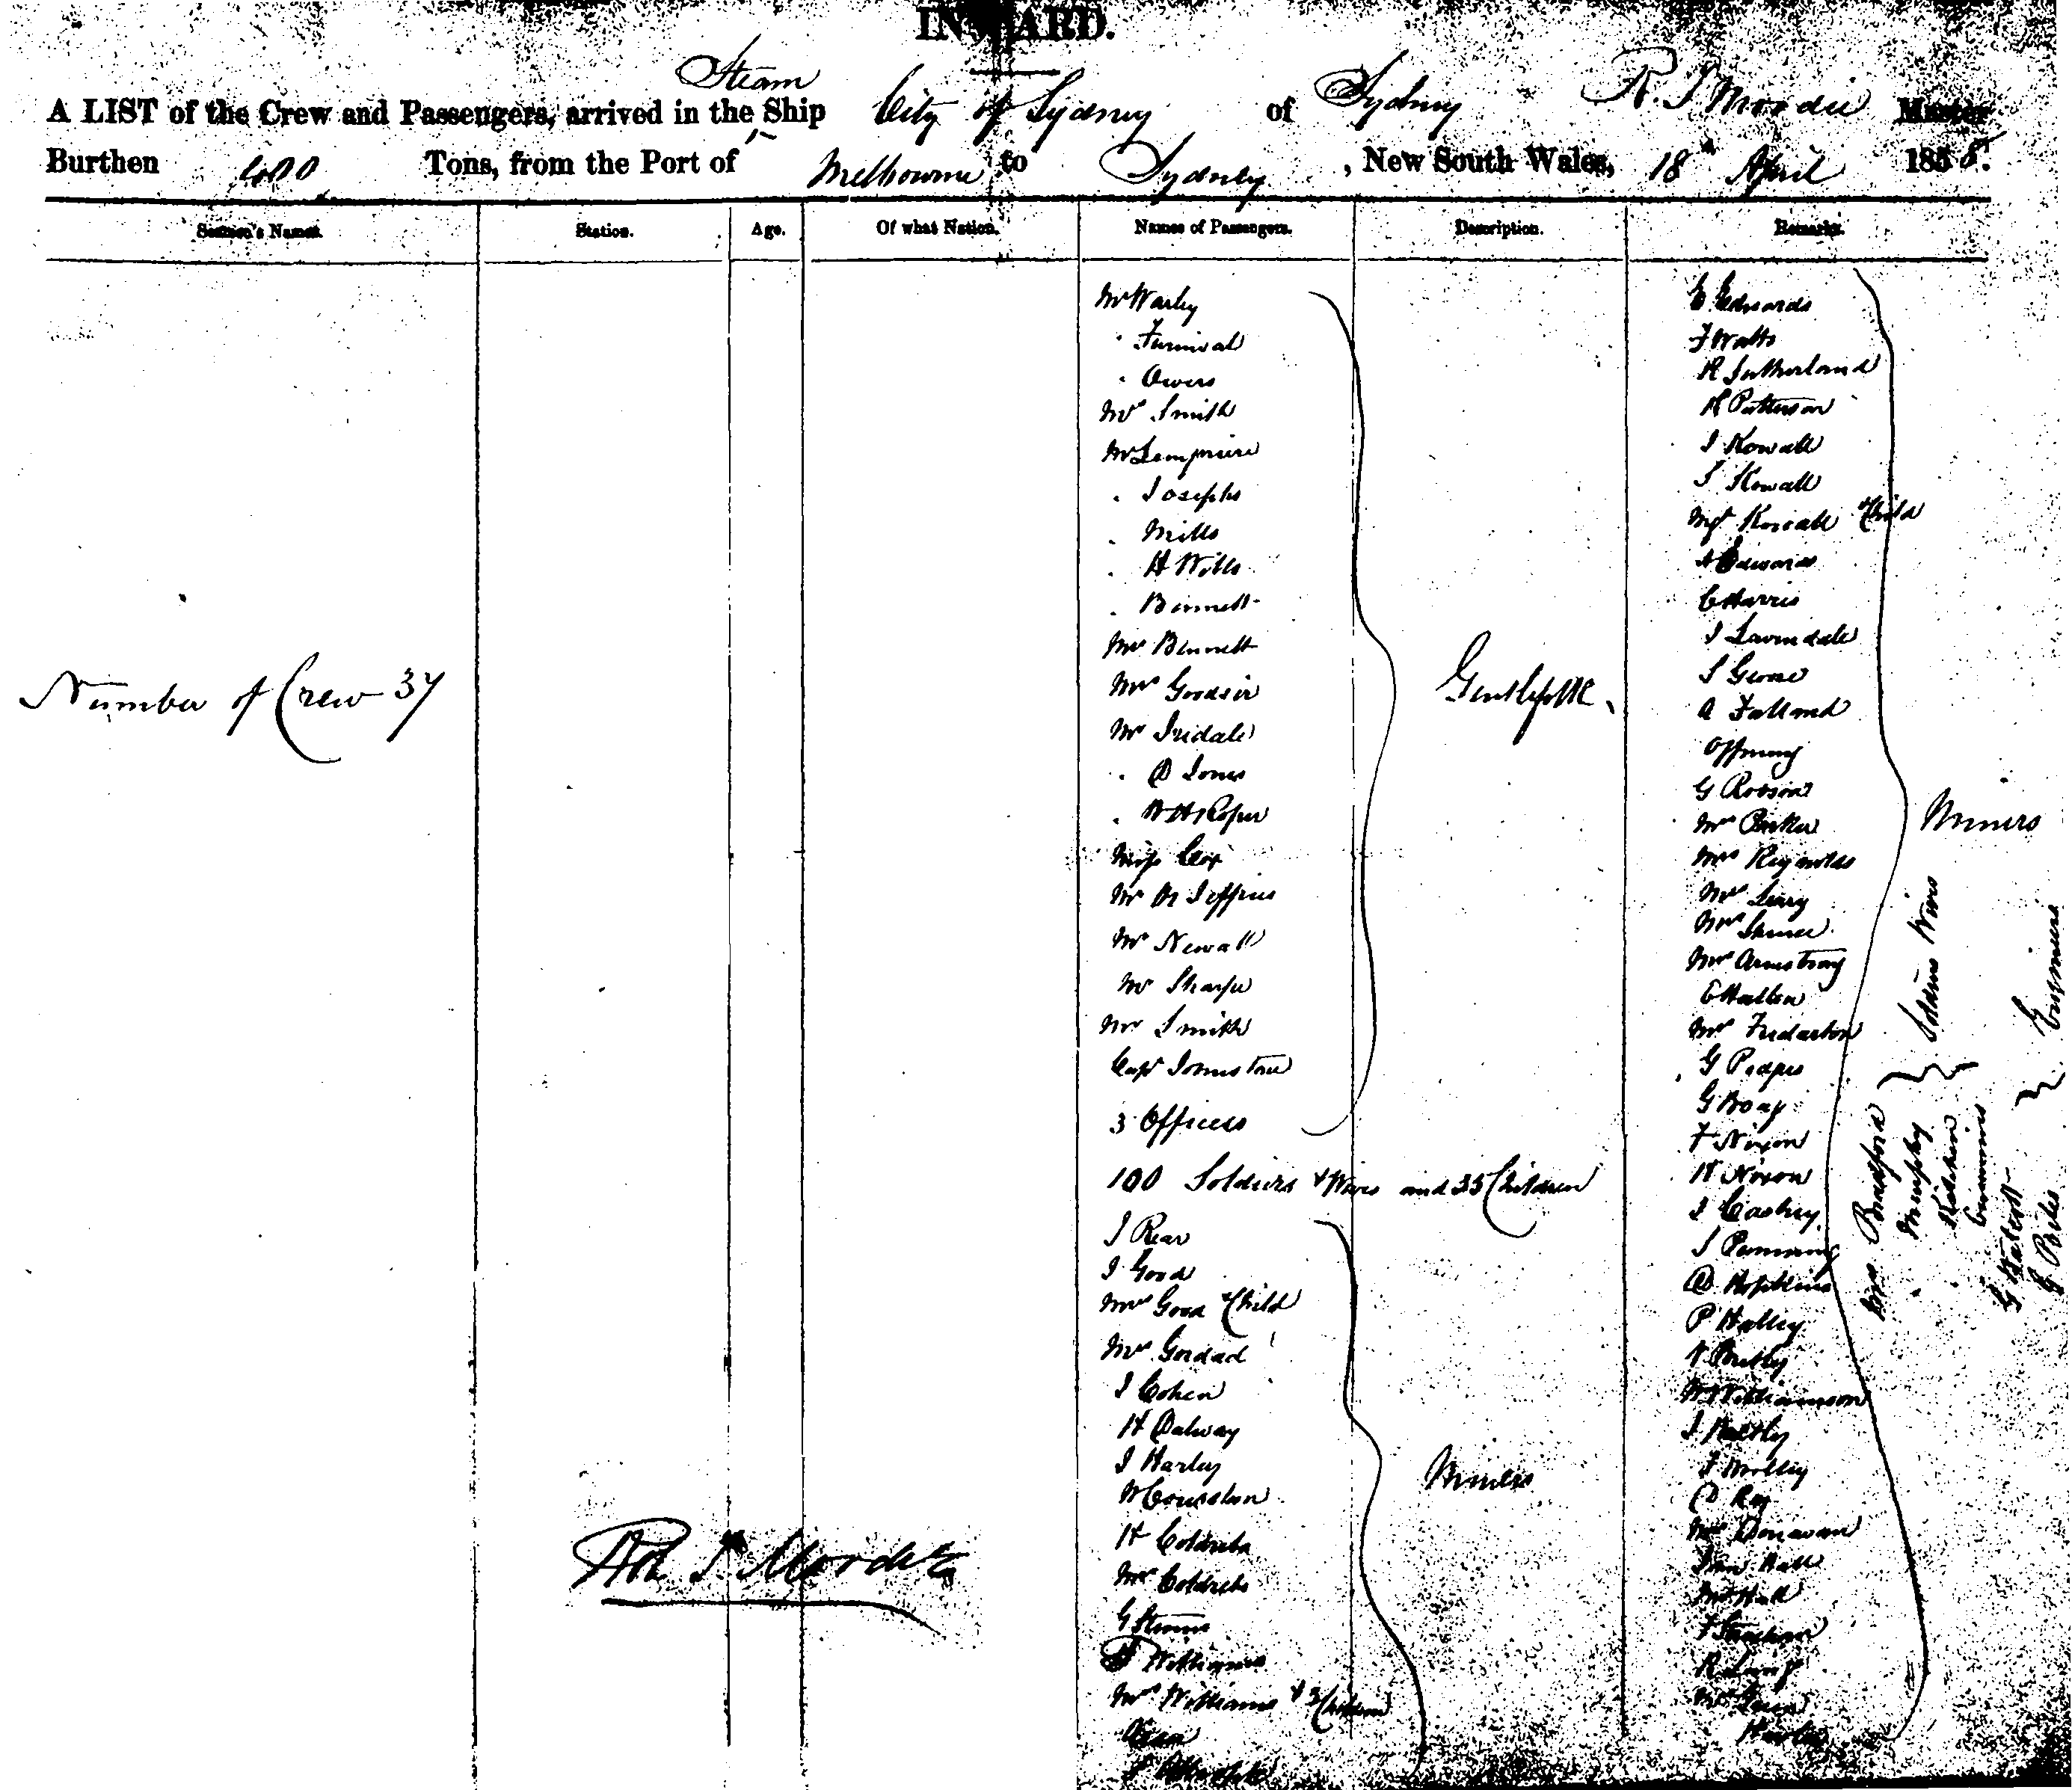 INWARD.
Steam
A LIST of the Crew and Passengers, arrived in the Ship City of Sydney of Sydney R. T Moodie Master
Burthen 400 Tons, from the Port of Melbourne to Sydney, New South Wales, 18th April 1858.
Seamen's Names. Station. Age. Of what Nation. Names of Passengers. Description. Remarks.
Number of Crew 37
Mr Warley
" Furnival
" Owers
Mrs Smith
Mr Lempriere
" Josephs
" Mills
" H Wills
" Bennett
Mrs Bennett
Mrs Goodsir
Mr Iredale
" D Jones
" W H Roper
Miss Cox
Mr M Jeffries
Mr Newall
Mr Sharpe
Mr Smith
Capt Johnstone
3 Officers
Gentlefolk
100 Soldiers & Wives and 35 Children
J Rear
J Good
Mrs Good & Child
Mrs Gordad
J Cohen
H Dalway
J Harley
W Courston
H Coldrebs
Mrs Coldrebs
G Stevens
Williams
Mrs Williams & 3 Children
Miners
Robt T. Moodie
E Edwards
F Watts
R Sutherland
R Patterson
J Kowall
S Kowall
Mrs Kowall & Child
A Edwards
C Harris
J Lavindale
S George
A Falland
G Robson
Mrs Parker
Mrs Reynolds
Mrs Leary
Mrs Spence
Mrs Armstrong
C Hatton
Mrs Fedarton
G Podges
G Boag
F Nixon
H Nixon
J Caskey
D Hopkins
P Halley
W Williamson
F Molley
D Ray
Mrs Donavan
Jane Hall
Mrs Hall
F Strachan
R Lang
Miners
Mrs Bradford
" Murphy
" Kitchin
" Cummins
Soldiers Wives
G Halcott
G Poiles
Engineers